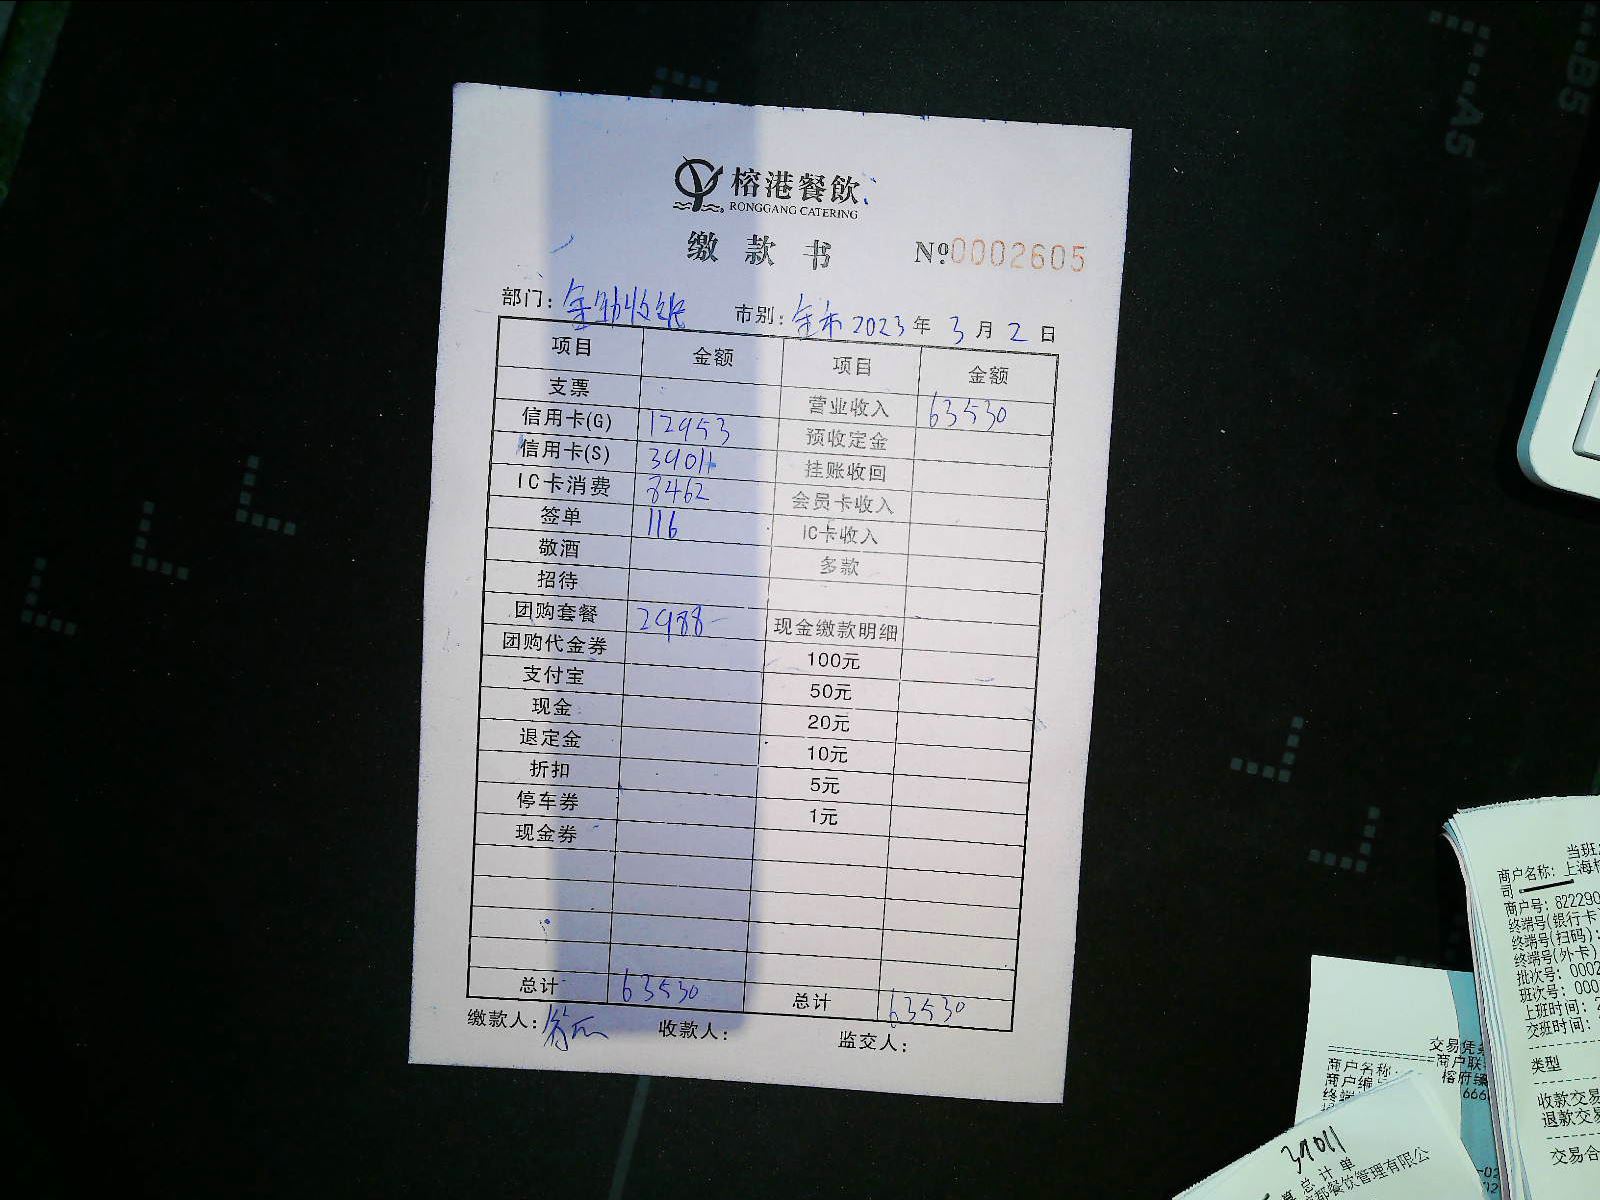 榕港餐飲
RONGGANG CATERING
缴款书 Nº:0002605
部门: 市别: 全市 2023年3月2日
项目 金额 项目 金额
支票 营业收入 63530
信用卡(G) 12953 预收定金
信用卡(S) 39011 挂账收回
IC卡消费 8462 会员卡收入
签单 116 IC卡收入
敬酒 多款
招待
团购套餐 2988- 现金缴款明细
团购代金券 100元
支付宝 50元
现金 20元
退定金 10元
折扣 5元
停车券 1元
现金券
总计 63530 总计 63530
缴款人: 收款人: 监交人:
A5
B5
当班
商户名称: 上海
司
商户号: 822290
终端号(银行卡
终端号(扫码):
终端号(外卡)
批次号: 0002
班次号: 000
上班时间: 2
交班时间:
类型
收款交易
退款交易
交易合
交易凭
商户联
商户名称: 榕府
商户编
终端 666
39011
总计单
餐饮管理有限公